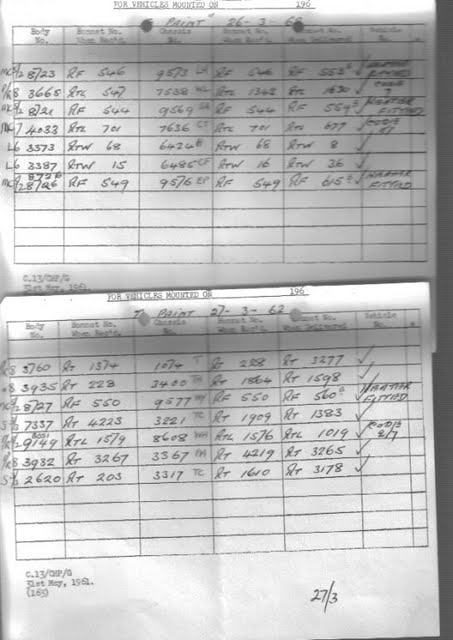 FOR VEHICLES MOUNTED ON 196
PAINT 26-3-62
Body No. Bonnet No. When Rec'd. Chassis No. Bonnet No. When Delivered Vehicle No.
8/23 RF 546 9573 RF 546 RF 553 ✓ HEATER FITTED
R/8 3665 RTL 547 7538 RTL 1343 RTL 1630 ✓ CODE 7
8/21 RF 544 9569 RF 544 RF 559 ✓ HEATER FITTED
4033 RTL 701 7636 CT RTL 701 RTL 677 ✓ CODE
L6 3373 RTW 68 6424 RTW 68 RTW 8 ✓
L6 3387 RTW 15 6485 CF RTW 16 RTW 36 ✓
8/26 RF 549 9576 EP RF 549 RF 615 ✓ HEATER FITTED
C.13/CHP/G
31st May, 1961.
FOR VEHICLES MOUNTED ON 196
PAINT 27-3-62
Body No. Bonnet No. When Rec'd. Chassis No. Bonnet No. When Delivered Vehicle No.
R/8 3760 RT 1374 1074 T RT 228 RT 3277 ✓
3935 RT 228 3400 RT 1864 RT 1598 ✓
8/27 RF 550 9577 RF 550 RF 560 ✓ HEATER FITTED
7337 RT 4223 3221 TC RT 1909 RT 1383 ✓
9149 RTL 1579 8608 RTL 1576 RTL 1019 ✓ CODE 8/7
R/8 3932 RT 3267 3367 RT 4219 RT 3265 ✓
2620 RT 203 3317 TC RT 1610 RT 3178 ✓
C.13/CHP/G
31st May, 1961.
(165)
27/3